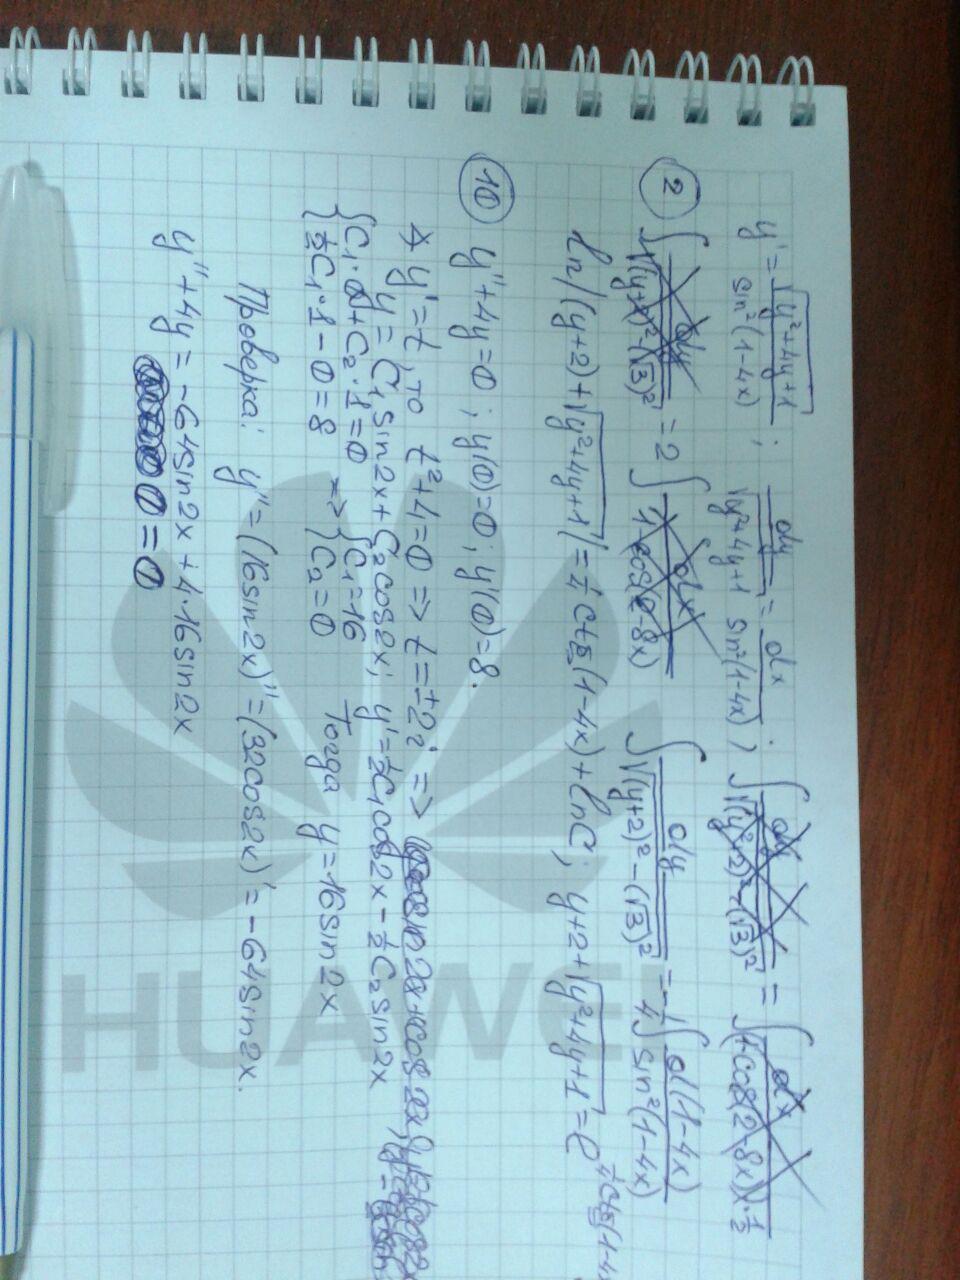 y' = √(y²+4y+1) / sin²(1-4x) ; dy/√(y²+4y+1) = dx/sin²(1-4x) ; ∫ dy/√((y²+2)²-(√3)²) = ∫ dx/(1-cos(2-8x))·½
② ∫ dy/√((y+2)²-(√3)²) = 2∫ dx/(1-cos(2-8x)) ∫ dy/√((y+2)²-(√3)²) = -¼∫ d(1-4x)/sin²(1-4x)
ln|(y+2)+√(y²+4y+1)| = ¼ctg(1-4x)+lnC; y+2+√(y²+4y+1) = C^(¼ctg(1-4x
⑩ y''+4y=0; y(0)=0; y'(0)=8.
y'=t, то t²+4=0 => t=±2i =>
y=C₁sin2x+C₂cos2x; y'=½C₁cos2x-½C₂sin2x
{C₁·0+C₂·1=0
{½C₁·1-0=8 => {C₁=16 {C₂=0 Тогда y=16sin2x
Проверка: y''=(16sin2x)''=(32cos2x)'=-64sin2x.
y''+4y=-64sin2x+4·16sin2x
0=0
HUAWEI